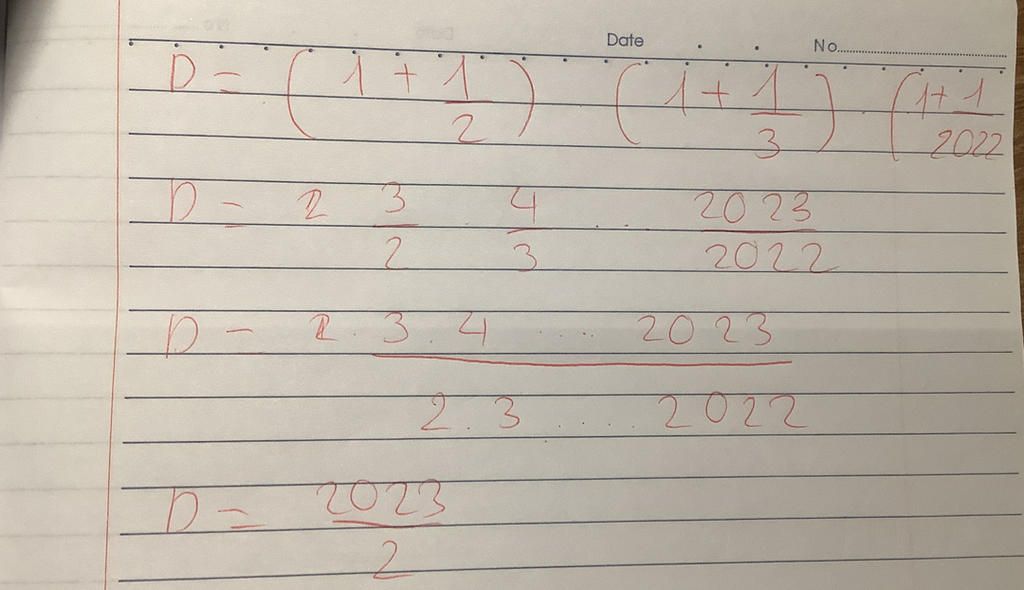 Date . . No.
D = (1 + 1/2) (1 + 1/3) (1 + 1/2022
D = 2 3/2 4/3 ... 2023/2022
D = 2 . 3 . 4 .... 2023 / 2 . 3 ..... 2022
D = 2023/2